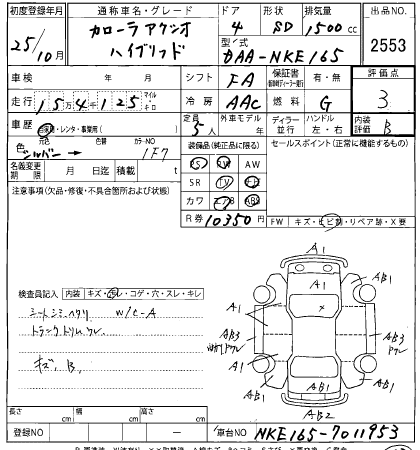 初度登録年月 通称車名・グレード ドア 形状 排気量 出品NO.
25/10月 カローラ アクシオ ハイブリッド 4 SD 1500cc 2553
型式 DAA-NKE165
車検 年 月 シフト FA 保証書 有・無 評価点
走行 15万4千125 マイル キロ 冷房 AAC 燃料 G 3
車歴 自家用・レンタ・事業用( ) 定員 5人 外車モデル 年 ディーラー 並行 ハンドル 左・右 内装評価 B
色 元色 シルバー → 色替 カラーNO 1F7 装備品(純正品に限る) セールスポイント(正常に機能するもの)
PS PW AW
名義変更期限 月 日迄 積載 t SR TV
注意事項(欠品・修復・不具合箇所および状態) カワ ナビ
R券 10350円
FW キズ・ヒビ割・リペア跡・X要
検査員記入 内装 キズ・汚レ・コゲ・穴・スレ・キレ
シートシミ ヘタリ W/C-A
トランクトリムワレ
キズ、B、
A1
A1 AB1
A1
AB3 AB3
ワレ
A1 AB1
AB1
AB2
長さ cm 幅 cm 高さ cm
登録NO ー 車台NO NKE165-7011953